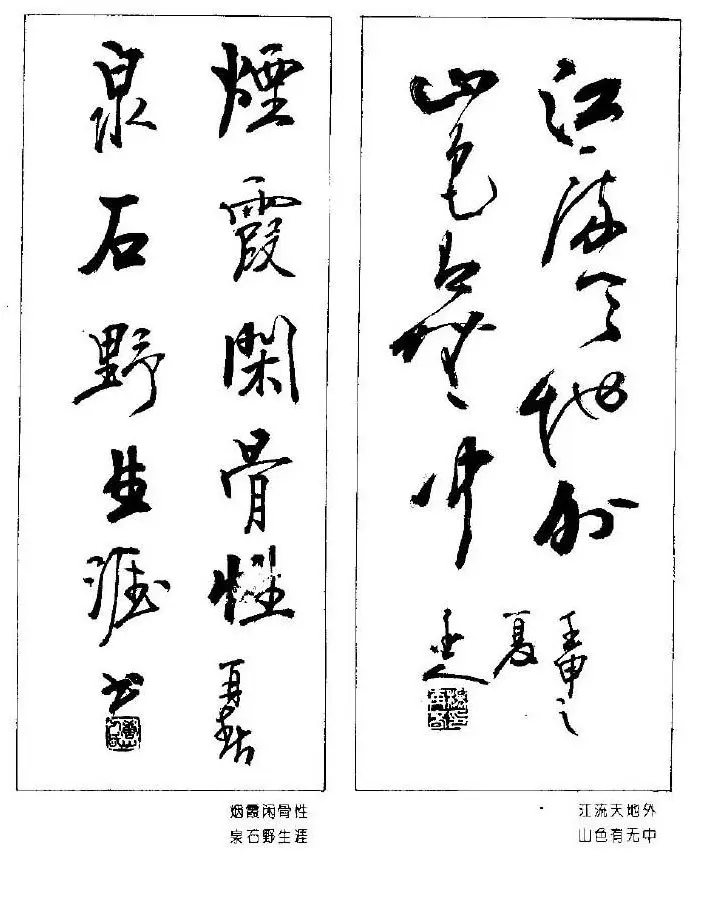 江流天地外
壬申之
山色有無中
夏
煙霞閑骨性
泉石野生涯
书
烟霞闲骨性
泉石野生涯
江流天地外
山色有无中